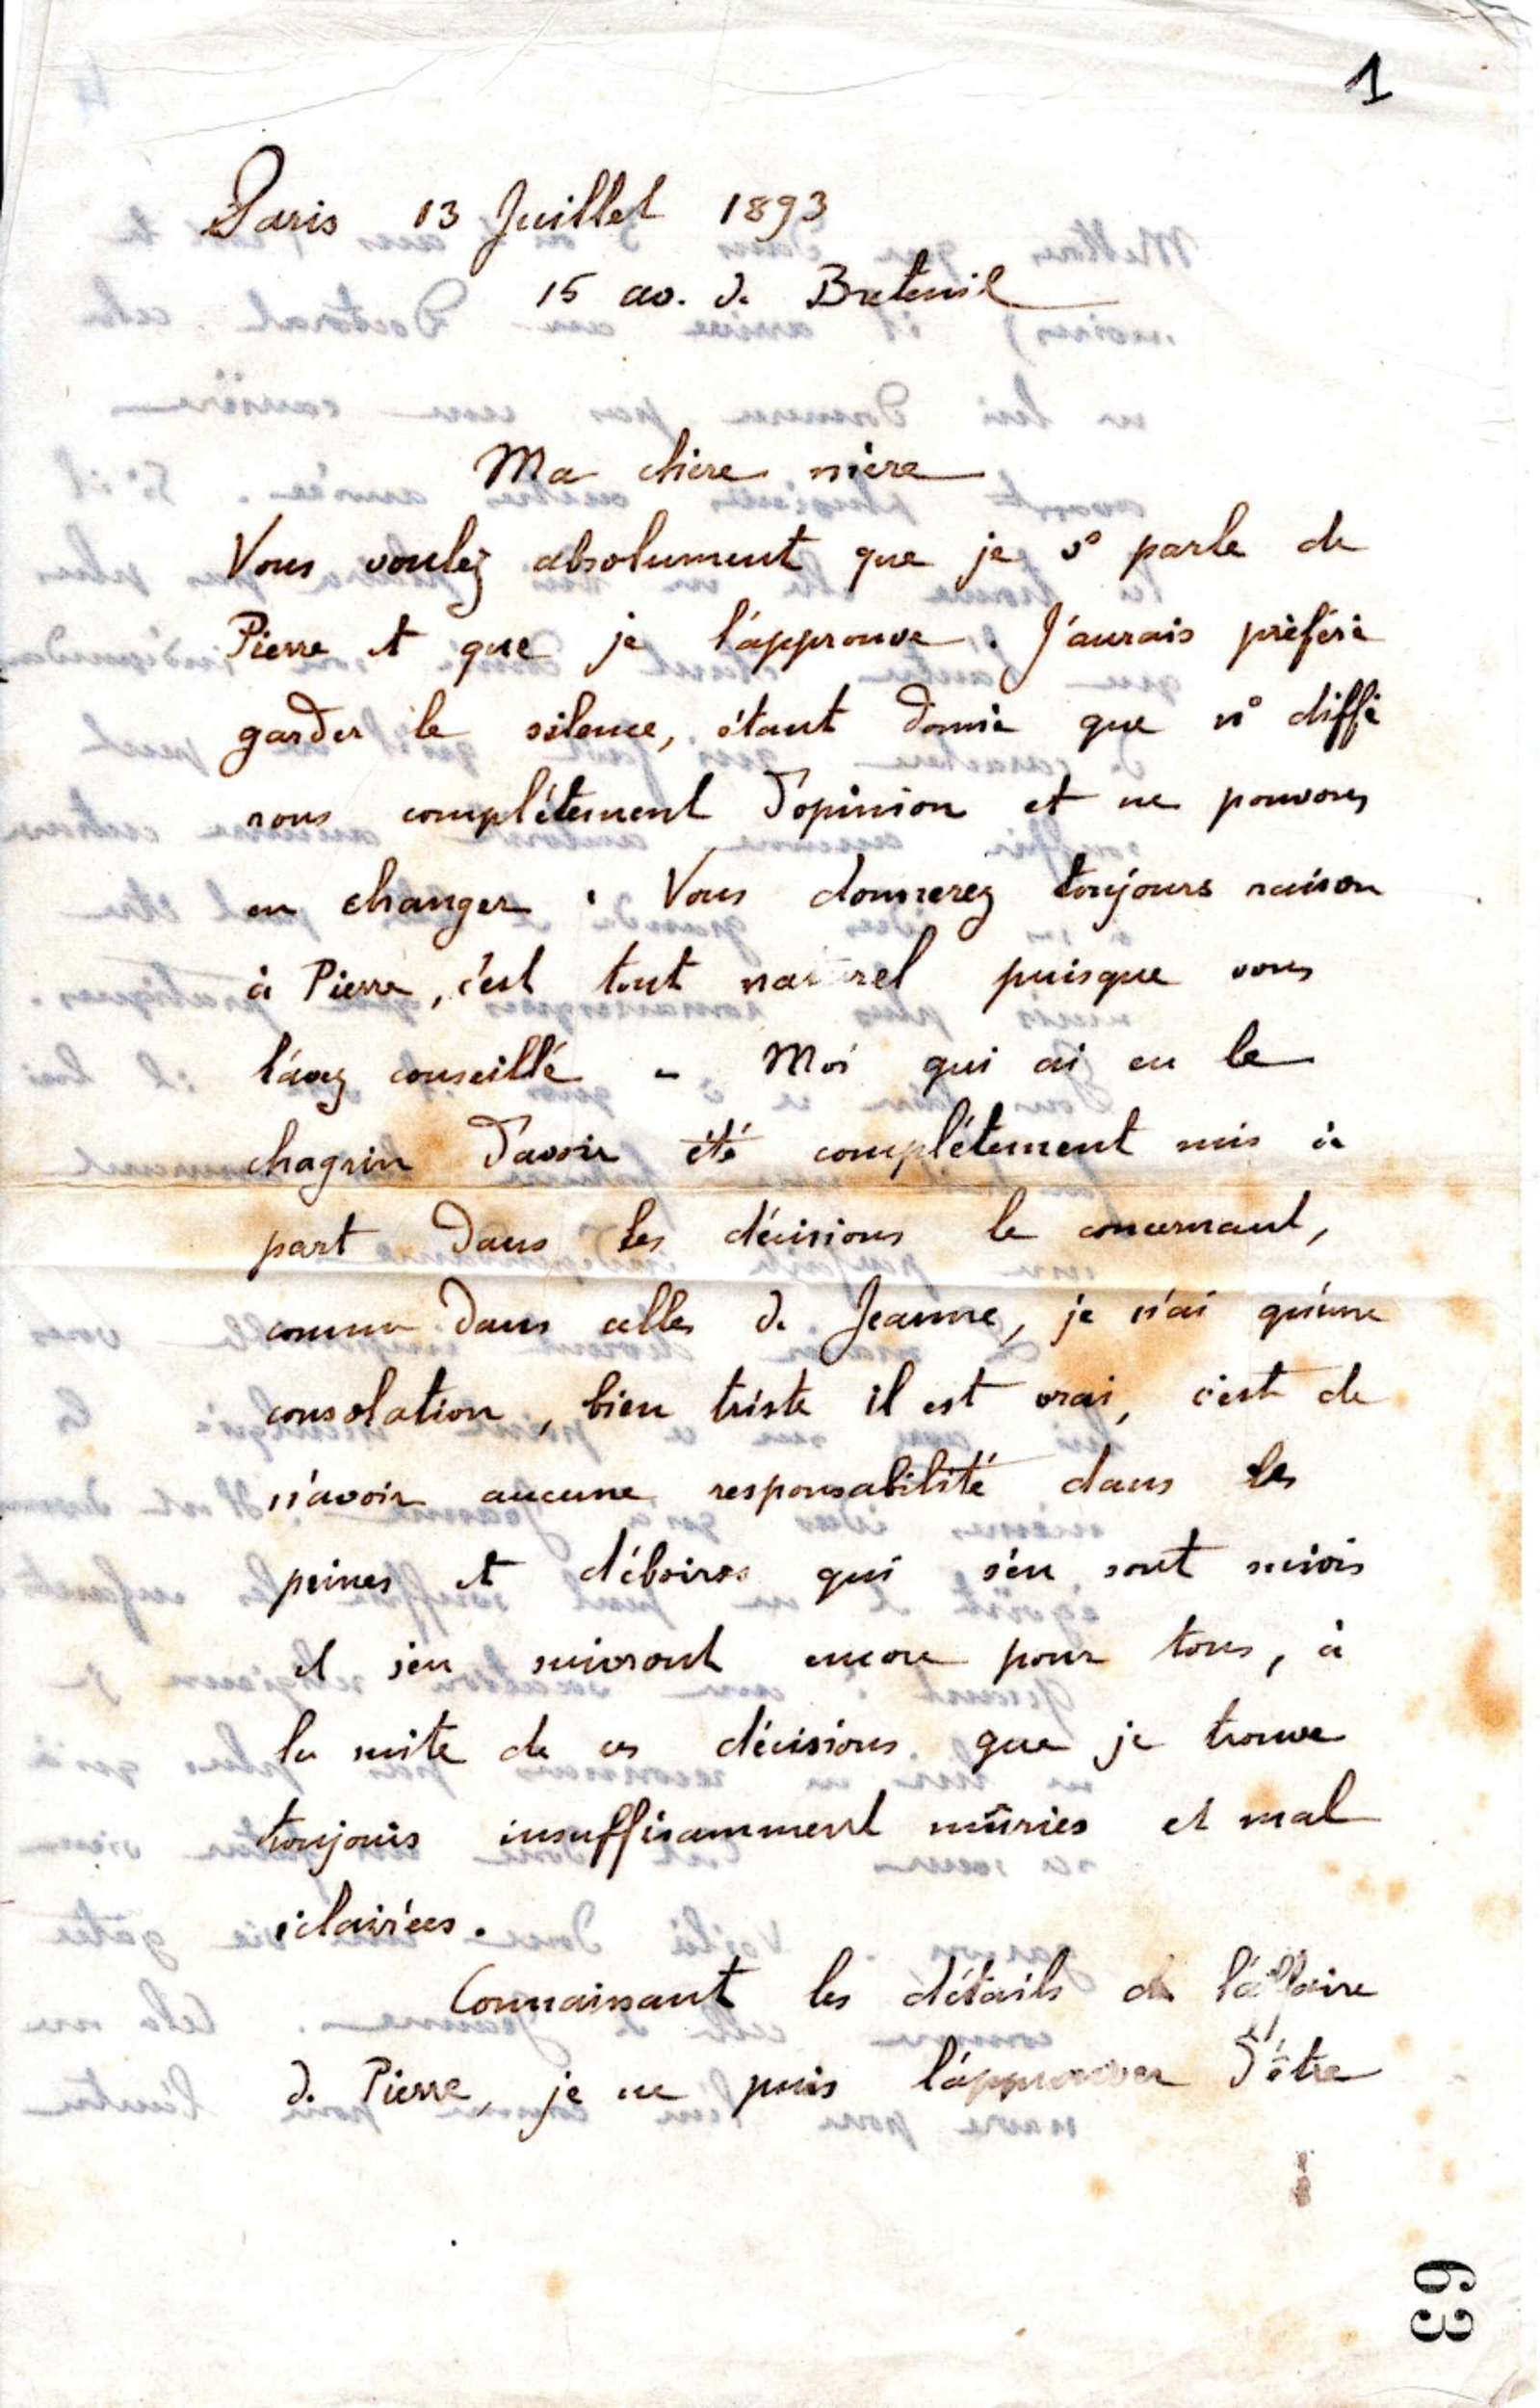 1
Paris 13 Juillet 1893
15 av. d. Breteuil
Ma chère mère
Vous voulez absolument que je vs parle de
Pierre et que je l'approuve. J'aurais préféré
garder le silence, étant donné que ns diffé
rons complètement d'opinion et ne pouvons
en changer. Vous donnerez toujours raison
à Pierre, c'est tout naturel puisque vous
l'avez conseillé - Moi qui ai eu le
chagrin d'avoir été complètement mis à
part dans les décisions le concernant,
comme dans celles d. Jeanne, je n'ai qu'une
consolation, bien triste il est vrai, c'est de
n'avoir aucune responsabilité dans les
peines et déboires qui s'en sont suivis
et s'en suivront encore pour tous, à
la suite de ces décisions que je trouve
toujours insuffisamment mûries et mal
éclairées.
Connaissant les détails de l'affaire
d. Pierre, je ne puis l'approuver d'être
63